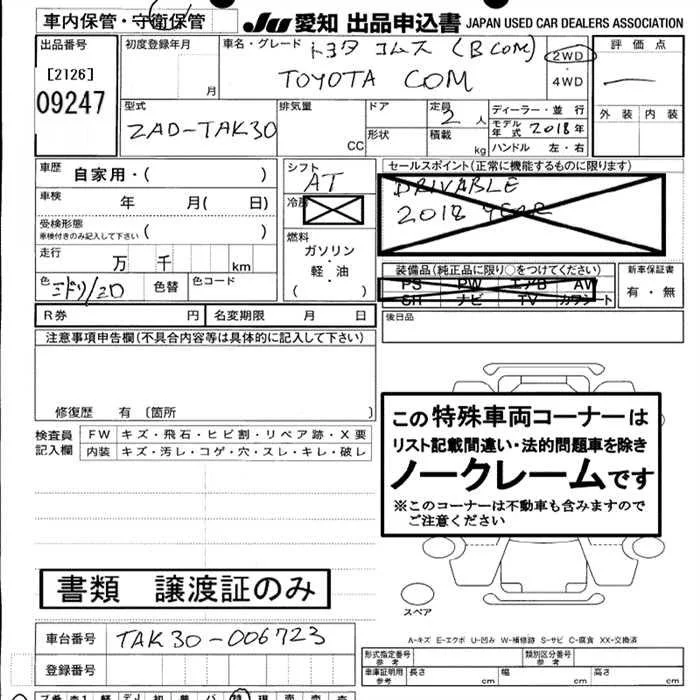 車内保管・守衛保管
JU 愛知 出品申込書 JAPAN USED CAR DEALERS ASSOCIATION
出品番号
[2126]
09247
初度登録年月
月
車名・グレード トヨタ コムス (B COM)
TOYOTA COM
2WD
・
4WD
評価点
外装 内装
型式
ZAD-TAK30
排気量
CC
ドア
形状
定員
2 人
積載
kg
ディーラー・並行
モデル年式 2018年
ハンドル 左・右
車歴 自家用・( )
車検 年 月( 日)
受検形態
車検付きのみ記入して下さい ( )
走行
万 千 km
色 ミドリ/20 色替 色コード
シフト
AT
冷房
燃料
ガソリン
・
軽・油
( )
セールスポイント(正常に機能するものに限ります)
DRIVABLE
2018 YEAR
装備品(純正品に限り○をつけてください)
PS PW エアB AW
SR ナビ TV カワシート
新車保証書
有・無
R券 円 名変期限 月 日
後日品
注意事項申告欄(不具合内容等は具体的に記入して下さい)
修復歴 有 〔箇所 〕
検査員
記入欄
FW キズ・飛石・ヒビ割・リペア跡・X要
内装 キズ・汚レ・コゲ・穴・スレ・キレ・破レ
この特殊車両コーナーは
リスト記載間違い・法的問題車を除き
ノークレームです
※このコーナーは不動車も含みますので
ご注意ください
書類 譲渡証のみ
スペア
A-キズ E-エクボ U-凹み W-補修跡 S-サビ C-腐食 XX-交換済
車台番号 TAK30-006723
登録番号
形式指定番号
参考
類別区分番号
参考
車庫証明用
参考
長さ
cm
幅
cm
高さ
cm